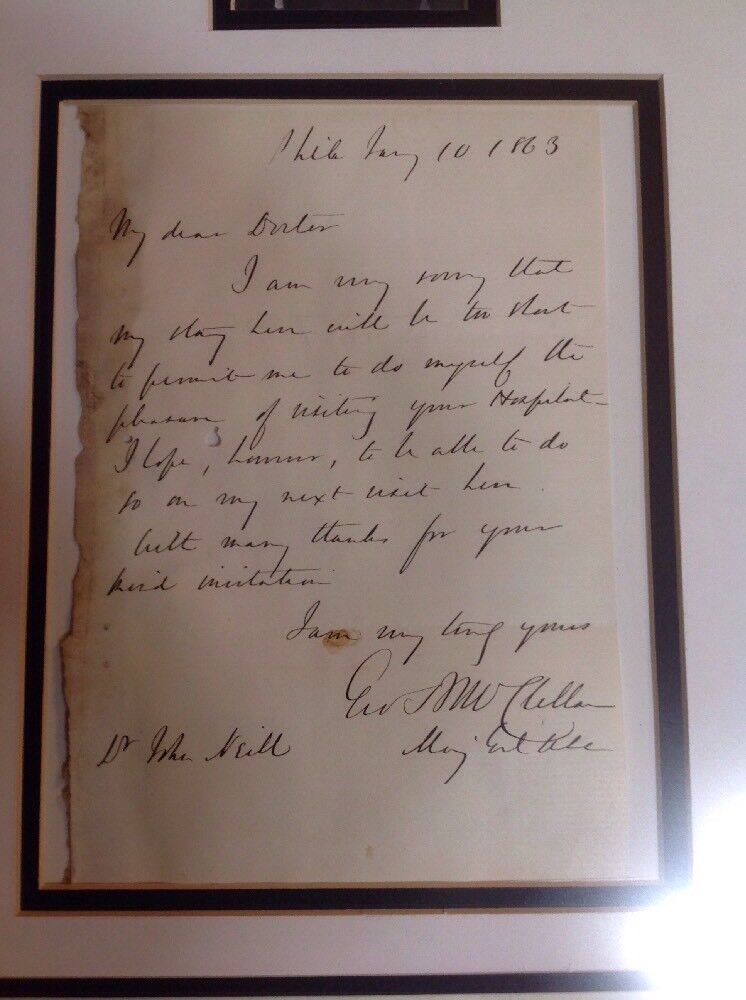 Phila Jany 10 1863
My dear Doctor
I am very sorry that
my stay here will be too short
to permit me to do myself the
pleasure of visiting your Hospital
I hope, however, to be able to do
so on my next visit here.
With many thanks for your
kind invitation
I am very truly yours
Geo B McClellan
Maj Genl USA
Dr John Neill